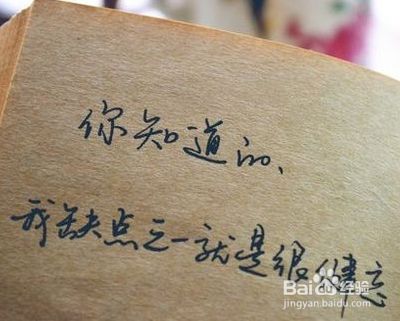 你知道的、
我缺点之一就是很健忘
Bai 百度 经验
jingyan.baidu.com